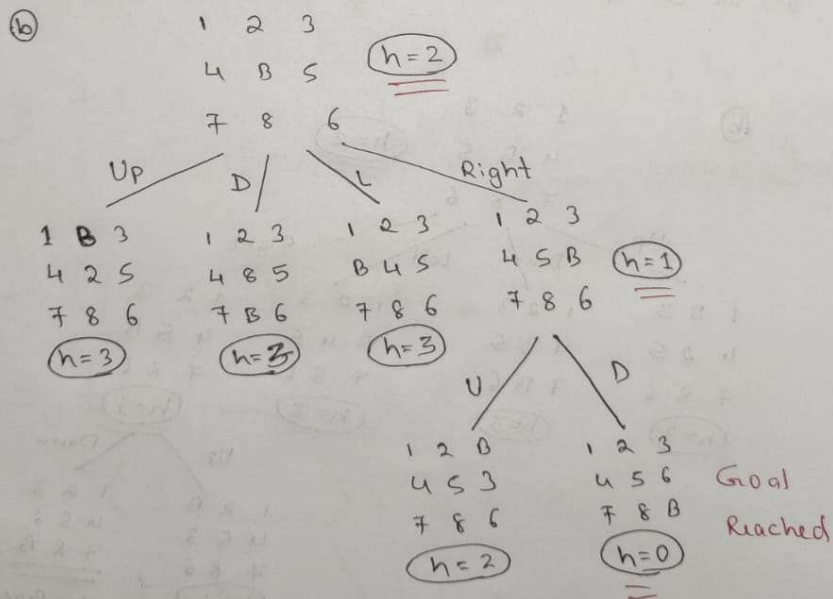 b
1 2 3
4 B 5
7 8 6
h=2
Up
D
L
Right
1 B 3
4 2 5
7 8 6
h=3
1 2 3
4 8 5
7 B 6
h=3
1 2 3
B 4 5
7 8 6
h=3
1 2 3
4 5 B
7 8 6
h=1
U
D
1 2 B
4 5 3
7 8 6
h=2
1 2 3
4 5 6
7 8 B
h=0
Goal
Reached